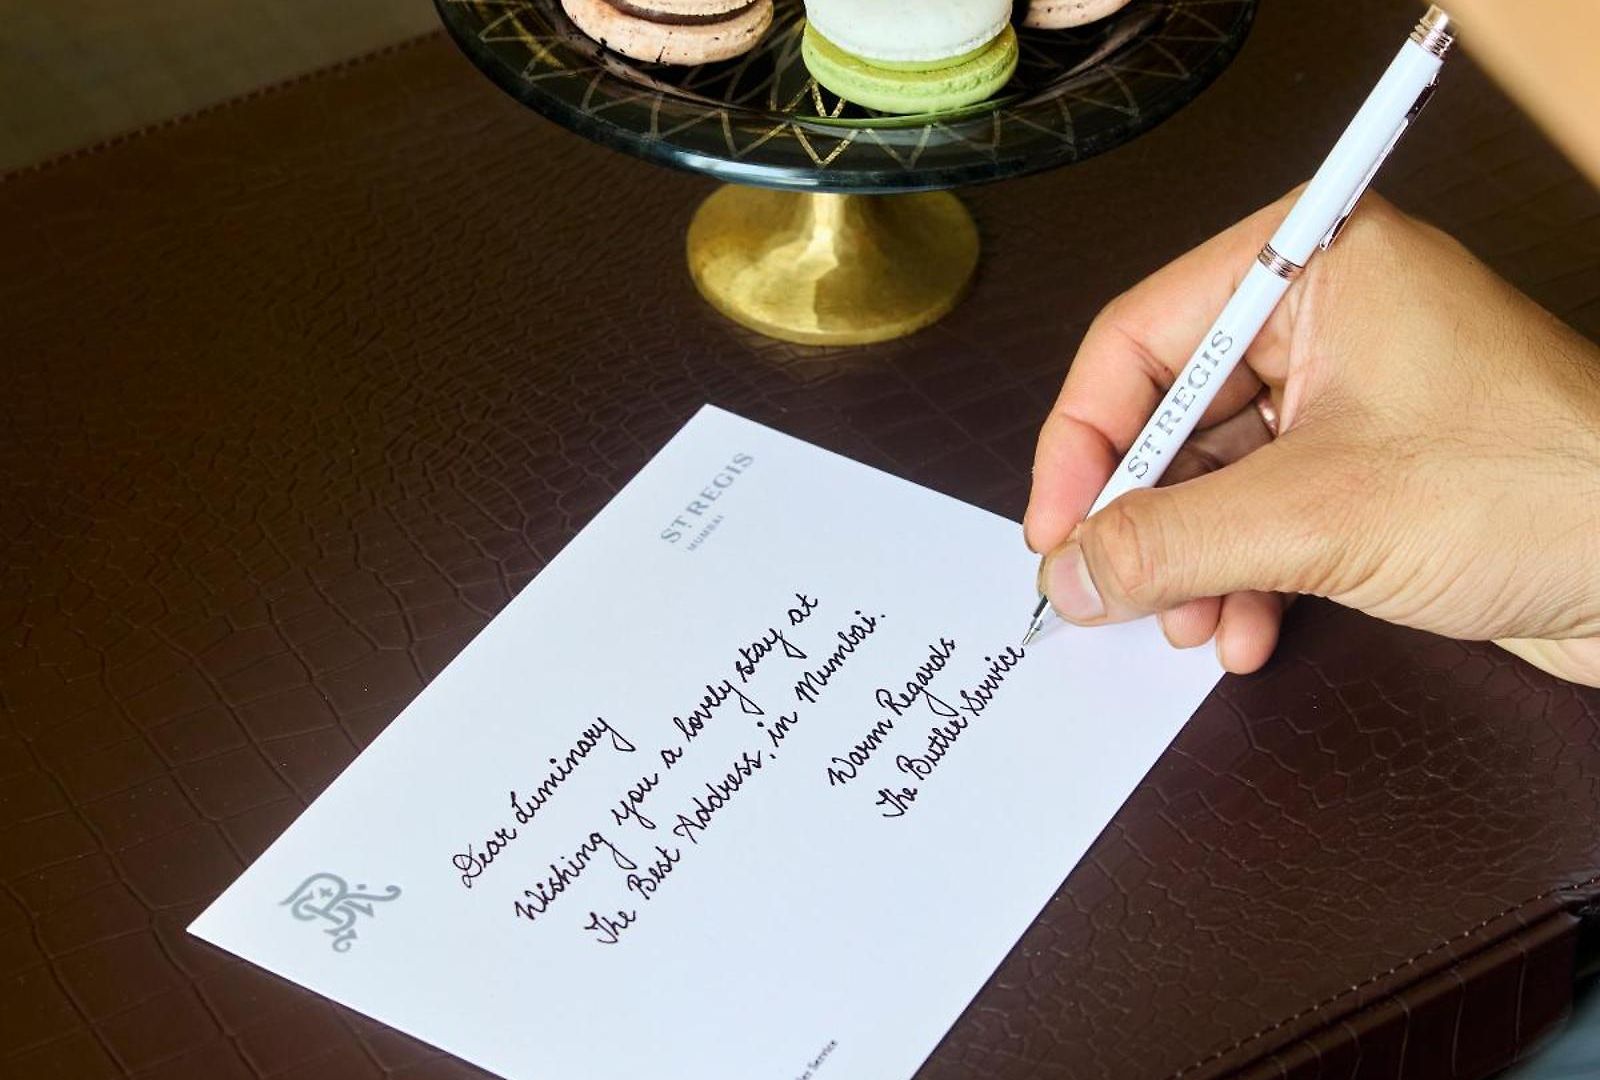 ST REGIS
MUMBAI
Dear Luminary
Wishing you a lovely stay at
The Best Address, in Mumbai.
Warm Regards
The Butler Service
Service
ST REGIS